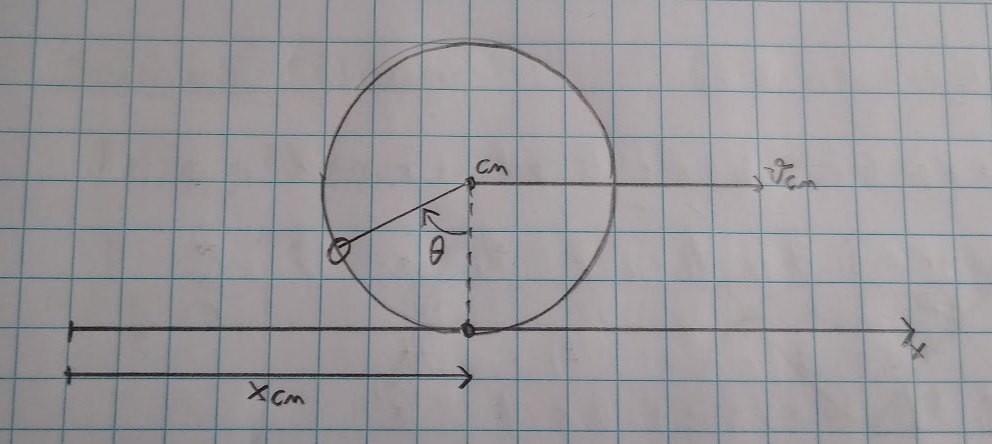 cm
vcm
θ
x
xcm